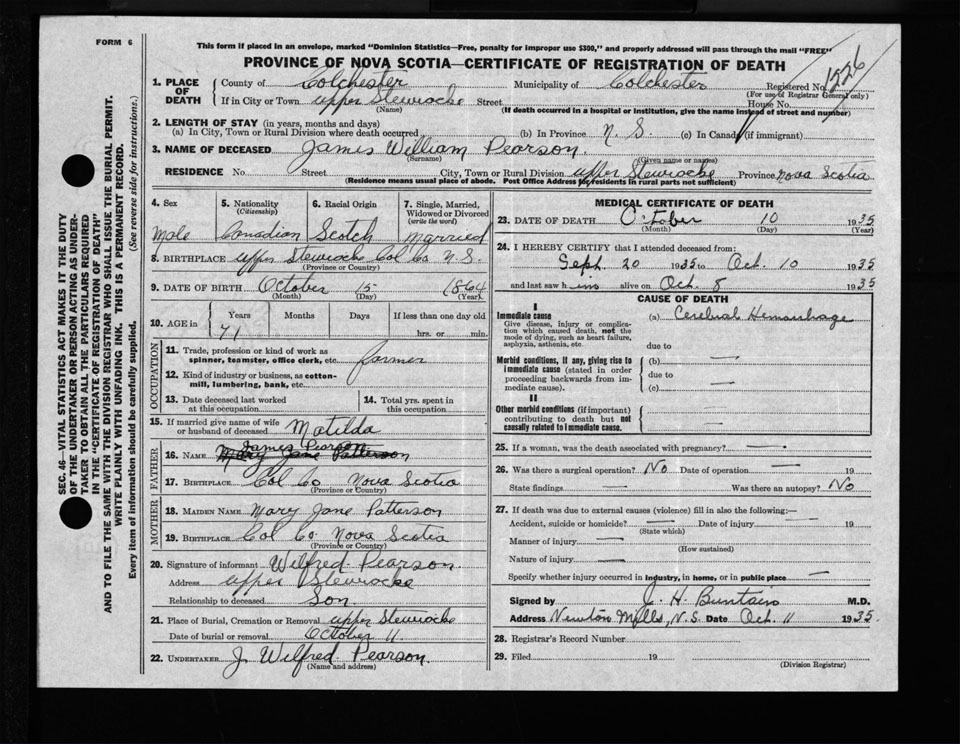 FORM 6
This form if placed in an envelope, marked "Dominion Statistics—Free, penalty for improper use $300," and properly addressed will pass through the mail "FREE"
PROVINCE OF NOVA SCOTIA—CERTIFICATE OF REGISTRATION OF DEATH
SEC. 46—VITAL STATISTICS ACT MAKES IT THE DUTY
OF THE UNDERTAKER OR PERSON ACTING AS UNDER-
TAKER TO OBTAIN ALL THE PARTICULARS REQUIRED
IN THE "CERTIFICATE OF REGISTRATION OF DEATH"
AND TO FILE THE SAME WITH THE DIVISION REGISTRAR WHO SHALL ISSUE THE BURIAL PERMIT.
WRITE PLAINLY WITH UNFADING INK. THIS IS A PERMANENT RECORD.
Every item of information should be carefully supplied. (See reverse side for instructions.)
1. PLACE OF DEATH County of Colchester Municipality of Colchester Registered No. 1226
(For use of Registrar General only)
If in City or Town upper Stewiacke Street House No.
(Name) (If death occurred in a hospital or institution, give the name instead of street and number)
2. LENGTH OF STAY (in years, months and days)
(a) In City, Town or Rural Division where death occurred (b) In Province N. S. (c) In Canada (if immigrant)
3. NAME OF DECEASED James William Pearson
(Surname) (Given name or names)
RESIDENCE No. Street City, Town or Rural Division upper Stewiacke Province Nova Scotia
(Residence means usual place of abode. Post Office Address for residents in rural parts not sufficient)
4. Sex 5. Nationality (Citizenship) 6. Racial Origin 7. Single, Married, Widowed or Divorced (write the word)
Male Canadian Scotch Married
8. BIRTHPLACE upper Stewiacke Col Co N. S.
(Province or Country)
9. DATE OF BIRTH October 15 1864
(Month) (Day) (Year)
10. AGE in Years Months Days If less than one day old
71 hrs. or min.
OCCUPATION
11. Trade, profession or kind of work as spinner, teamster, office clerk, etc. farmer
12. Kind of industry or business, as cotton-mill, lumbering, bank, etc.
13. Date deceased last worked at this occupation
14. Total yrs. spent in this occupation
15. If married give name of wife or husband of deceased Matilda
FATHER
James Pearson
16. NAME Mary Jane Patterson
17. BIRTHPLACE Col Co Nova Scotia
(Province or Country)
MOTHER
18. MAIDEN NAME Mary Jane Patterson
19. BIRTHPLACE Col Co. Nova Scotia
(Province or Country)
20. Signature of informant Wilfred Pearson
Address upper Stewiacke
Relationship to deceased Son
21. Place of Burial, Cremation or Removal upper Stewiacke
Date of burial or removal October 11
22. UNDERTAKER J. Wilfred Pearson
MEDICAL CERTIFICATE OF DEATH
23. DATE OF DEATH October 10 1935
(Month) (Day) (Year)
24. I HEREBY CERTIFY that I attended deceased from:
Sept. 20 1935 to Oct. 10 1935
and last saw him alive on Oct. 8 1935
CAUSE OF DEATH
I
Immediate cause (a) Cerebral Hemorrhage
Give disease, injury or complication which caused death, not the mode of dying, such as heart failure, asphyxia, asthenia, etc.
due to
Morbid conditions, if any, giving rise to immediate cause (stated in order proceeding backwards from immediate cause).
(b) —
due to
(c) —
II
Other morbid conditions (if important) contributing to death but not causally related to immediate cause.
25. If a woman, was the death associated with pregnancy? —
26. Was there a surgical operation? No Date of operation — 19
State findings — Was there an autopsy? No
27. If death was due to external causes (violence) fill in also the following:—
Accident, suicide or homicide? — Date of injury — 19
(State which)
Manner of injury —
(How sustained)
Nature of injury —
Specify whether injury occurred in industry, in home, or in public place —
Signed by J. H. Buntain M.D.
Address Newton Mills, N.S. Date Oct. 11 1935.
28. Registrar's Record Number
29. Filed 19
(Division Registrar)